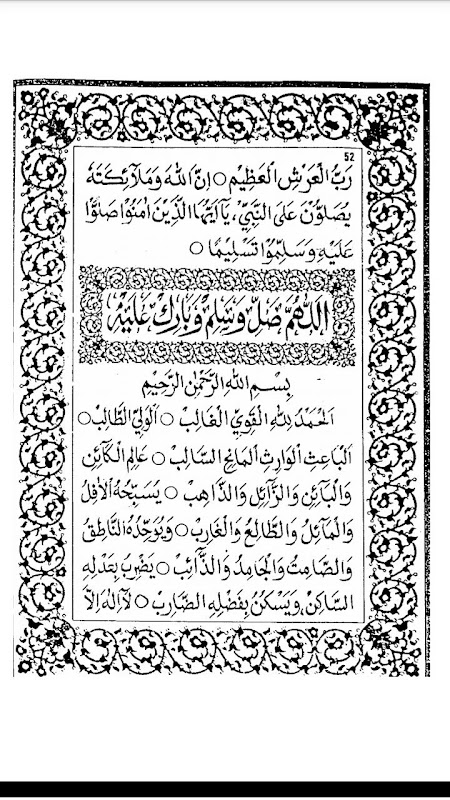 52
رَبُّ الْعَرْشِ الْعَظِيْمِ ○ اِنَّ اللّٰهَ وَمَلَآئِكَتَهٗ
يُصَلُّوْنَ عَلَى النَّبِيِّ، يَآاَيُّهَا الَّذِيْنَ اٰمَنُوْا صَلُّوْا
عَلَيْهِ وَسَلِّمُوْا تَسْلِيْمًا ○
اَللّٰهُمَّ صَلِّ وَسَلِّمْ وَبَارِكْ عَلَيْهِ
بِسْمِ اللّٰهِ الرَّحْمٰنِ الرَّحِيْمِ
اَلْحَمْدُ لِلّٰهِ الْقَوِيِّ الْغَالِبْ ○ اَلْوَلِيِّ الطَّالِبْ ○
اَلْبَاعِثِ الْوَارِثِ الْمَانِحِ السَّالِبْ ○ عَالِمِ الْكَآئِنِ
وَالْبَآئِنِ وَالزَّآئِلِ وَالذَّاهِبْ ○ يُسَبِّحُهُ الْاٰفِلُ
وَالْمَآئِلُ وَالطَّالِعُ وَالْغَارِبْ ○ وَيُوَحِّدُهُ النَّاطِقُ
وَالصَّامِتُ وَالْجَامِدُ وَالذَّآئِبْ ○ يَضْرِبُ بِعَدْلِهِ
السَّاكِنُ، وَيَسْكُنُ بِفَضْلِهِ الضَّارِبْ ○ لَآ اِلٰهَ اِلَّا